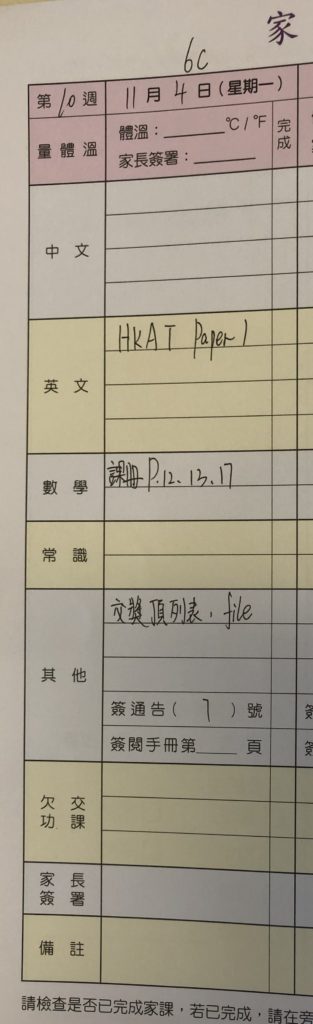 家
6C
第10週 11月4日(星期一)
量體溫 體溫：______°C/°F 完成
家長簽署：______
中文
HKAT Paper 1
英文
數學 課冊P.12.13.17
常識
交獎項列表，file
其他
簽通告( 7 )號
簽閱手冊第____頁
欠交功課
家長簽署
備註
請檢查是否已完成家課，若已完成，請在旁